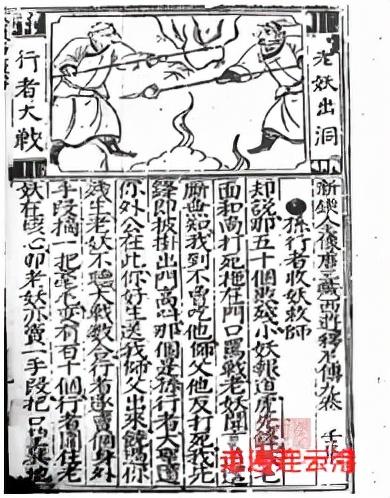 老妖出洞
行者大戰
新鍥全像唐三藏西遊釋尼傳
孫行者收妖救師
却說那五十個敗殘小妖報道虎先鋒
面和尚打死拖在門口罵戰老妖聞
厮無知我到不曾吃他師父他反打死我先
鋒即披掛出門高叫那個是孫行者大聖道
你外公在此你好生送我師父出來饒你
殘生老妖不聽大戰數合行者遂賣個身外
手段摘一把毫毛變有百十個行者圍住老
妖在垓心那老妖亦賣一手段把口望巽地